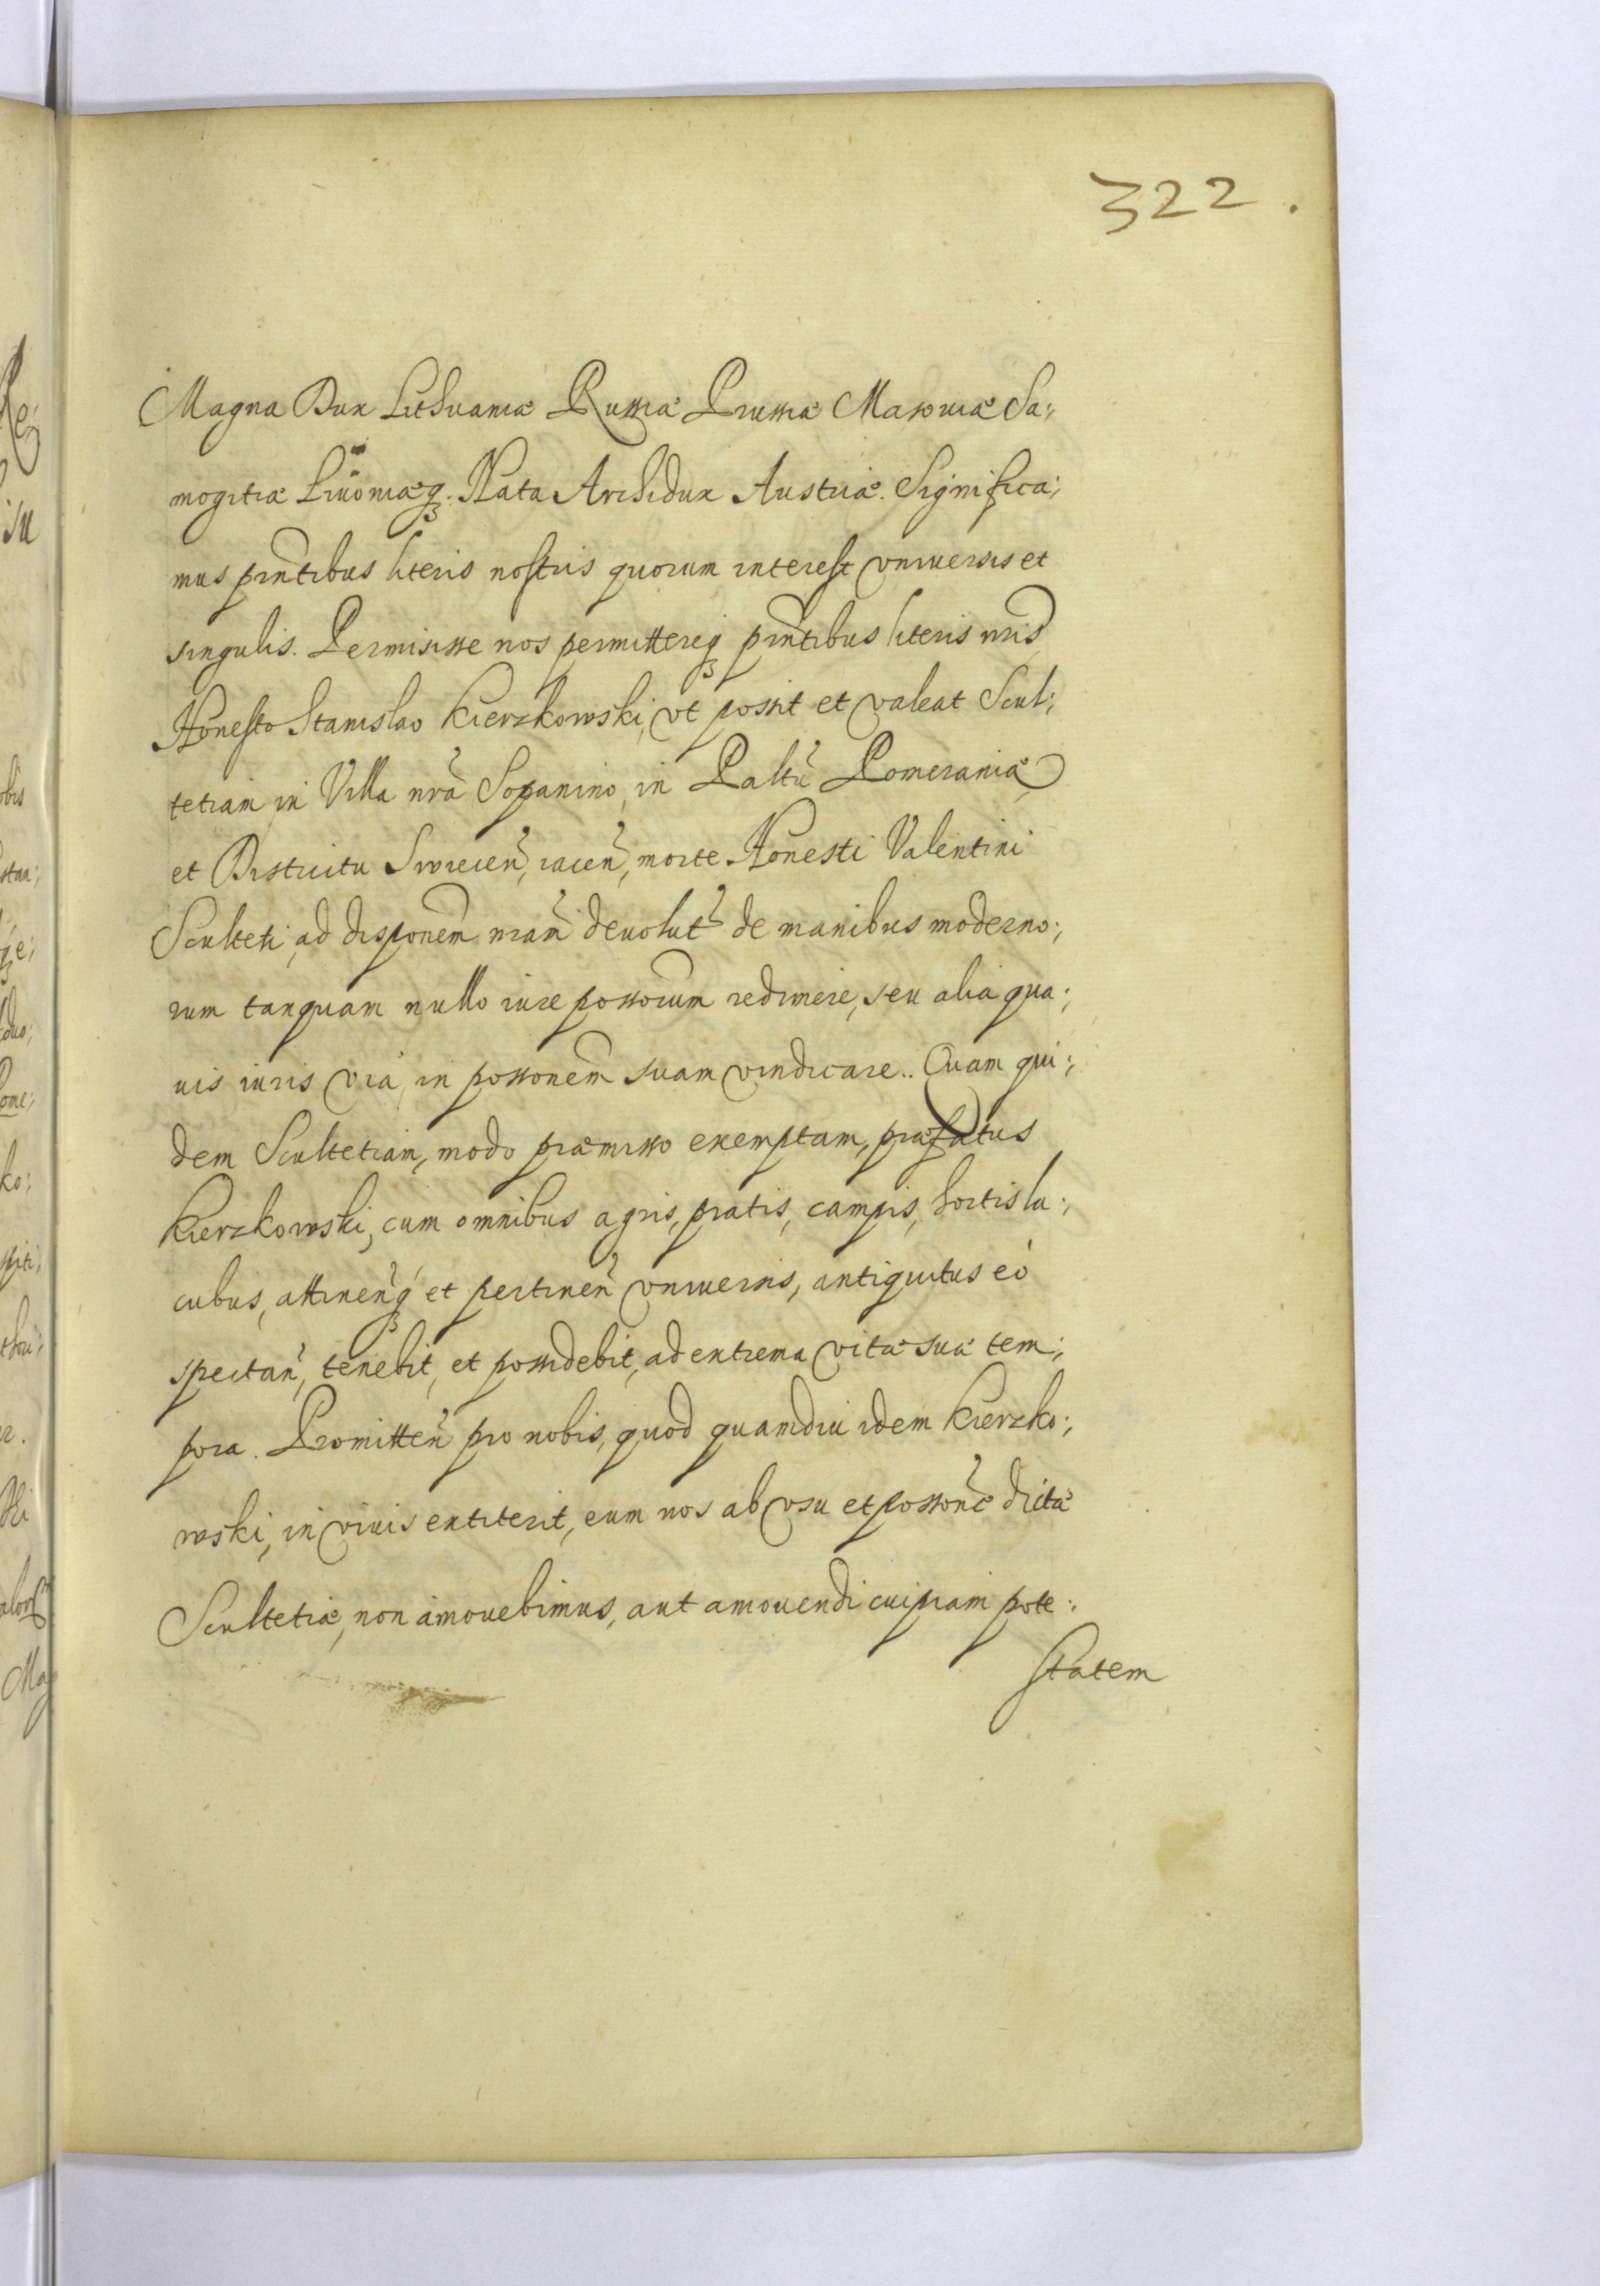 322.
Magna Dux Lithuaniæ Russiæ Prussiæ Masouiæ Sa:
mogitiæ Liuoniæq. Nata Archidux Austriæ. Significa:
mus pñtibus literis nostris quorum interest vniuersis et
singulis. Permisisse nos permittereq pñtibus literis nris
Honesto Stanislao Kierzkowski, vt possit et valeat Scul:
tetiam in Villa nrã in Paltũ Pomeraniæ
et Districtu Swiecen̄, iacen̄, morte Honesti Valentini
Sculteti, ad disponem nram̃ deuolut̃ de manibus moderno:
rum tanquam nullo iure possorum redimere, seu alia qua:
uis iuris via, in possonem suam vindicare.. Quam qui:
dem Scultetiam, modo præmisso exemptam, præfatus
Kierzkowski, cum omnibus agris, pratis, campis, hortis la:
cubus, attinen̄q et pertinen̄ vniuersis, antiquitus eò
spectan̄, tenebit, et possidebit, ad extrema vitæ suæ tem:
pora. Promitten̄ pro nobis, quod quamdiu idem Kierzko:
wski, in viuis extiterit, eum nos ab vsu et posson̄e dictæ
Scultetiæ, non amouebimus, aut amouendi cuipiam pote:
statem